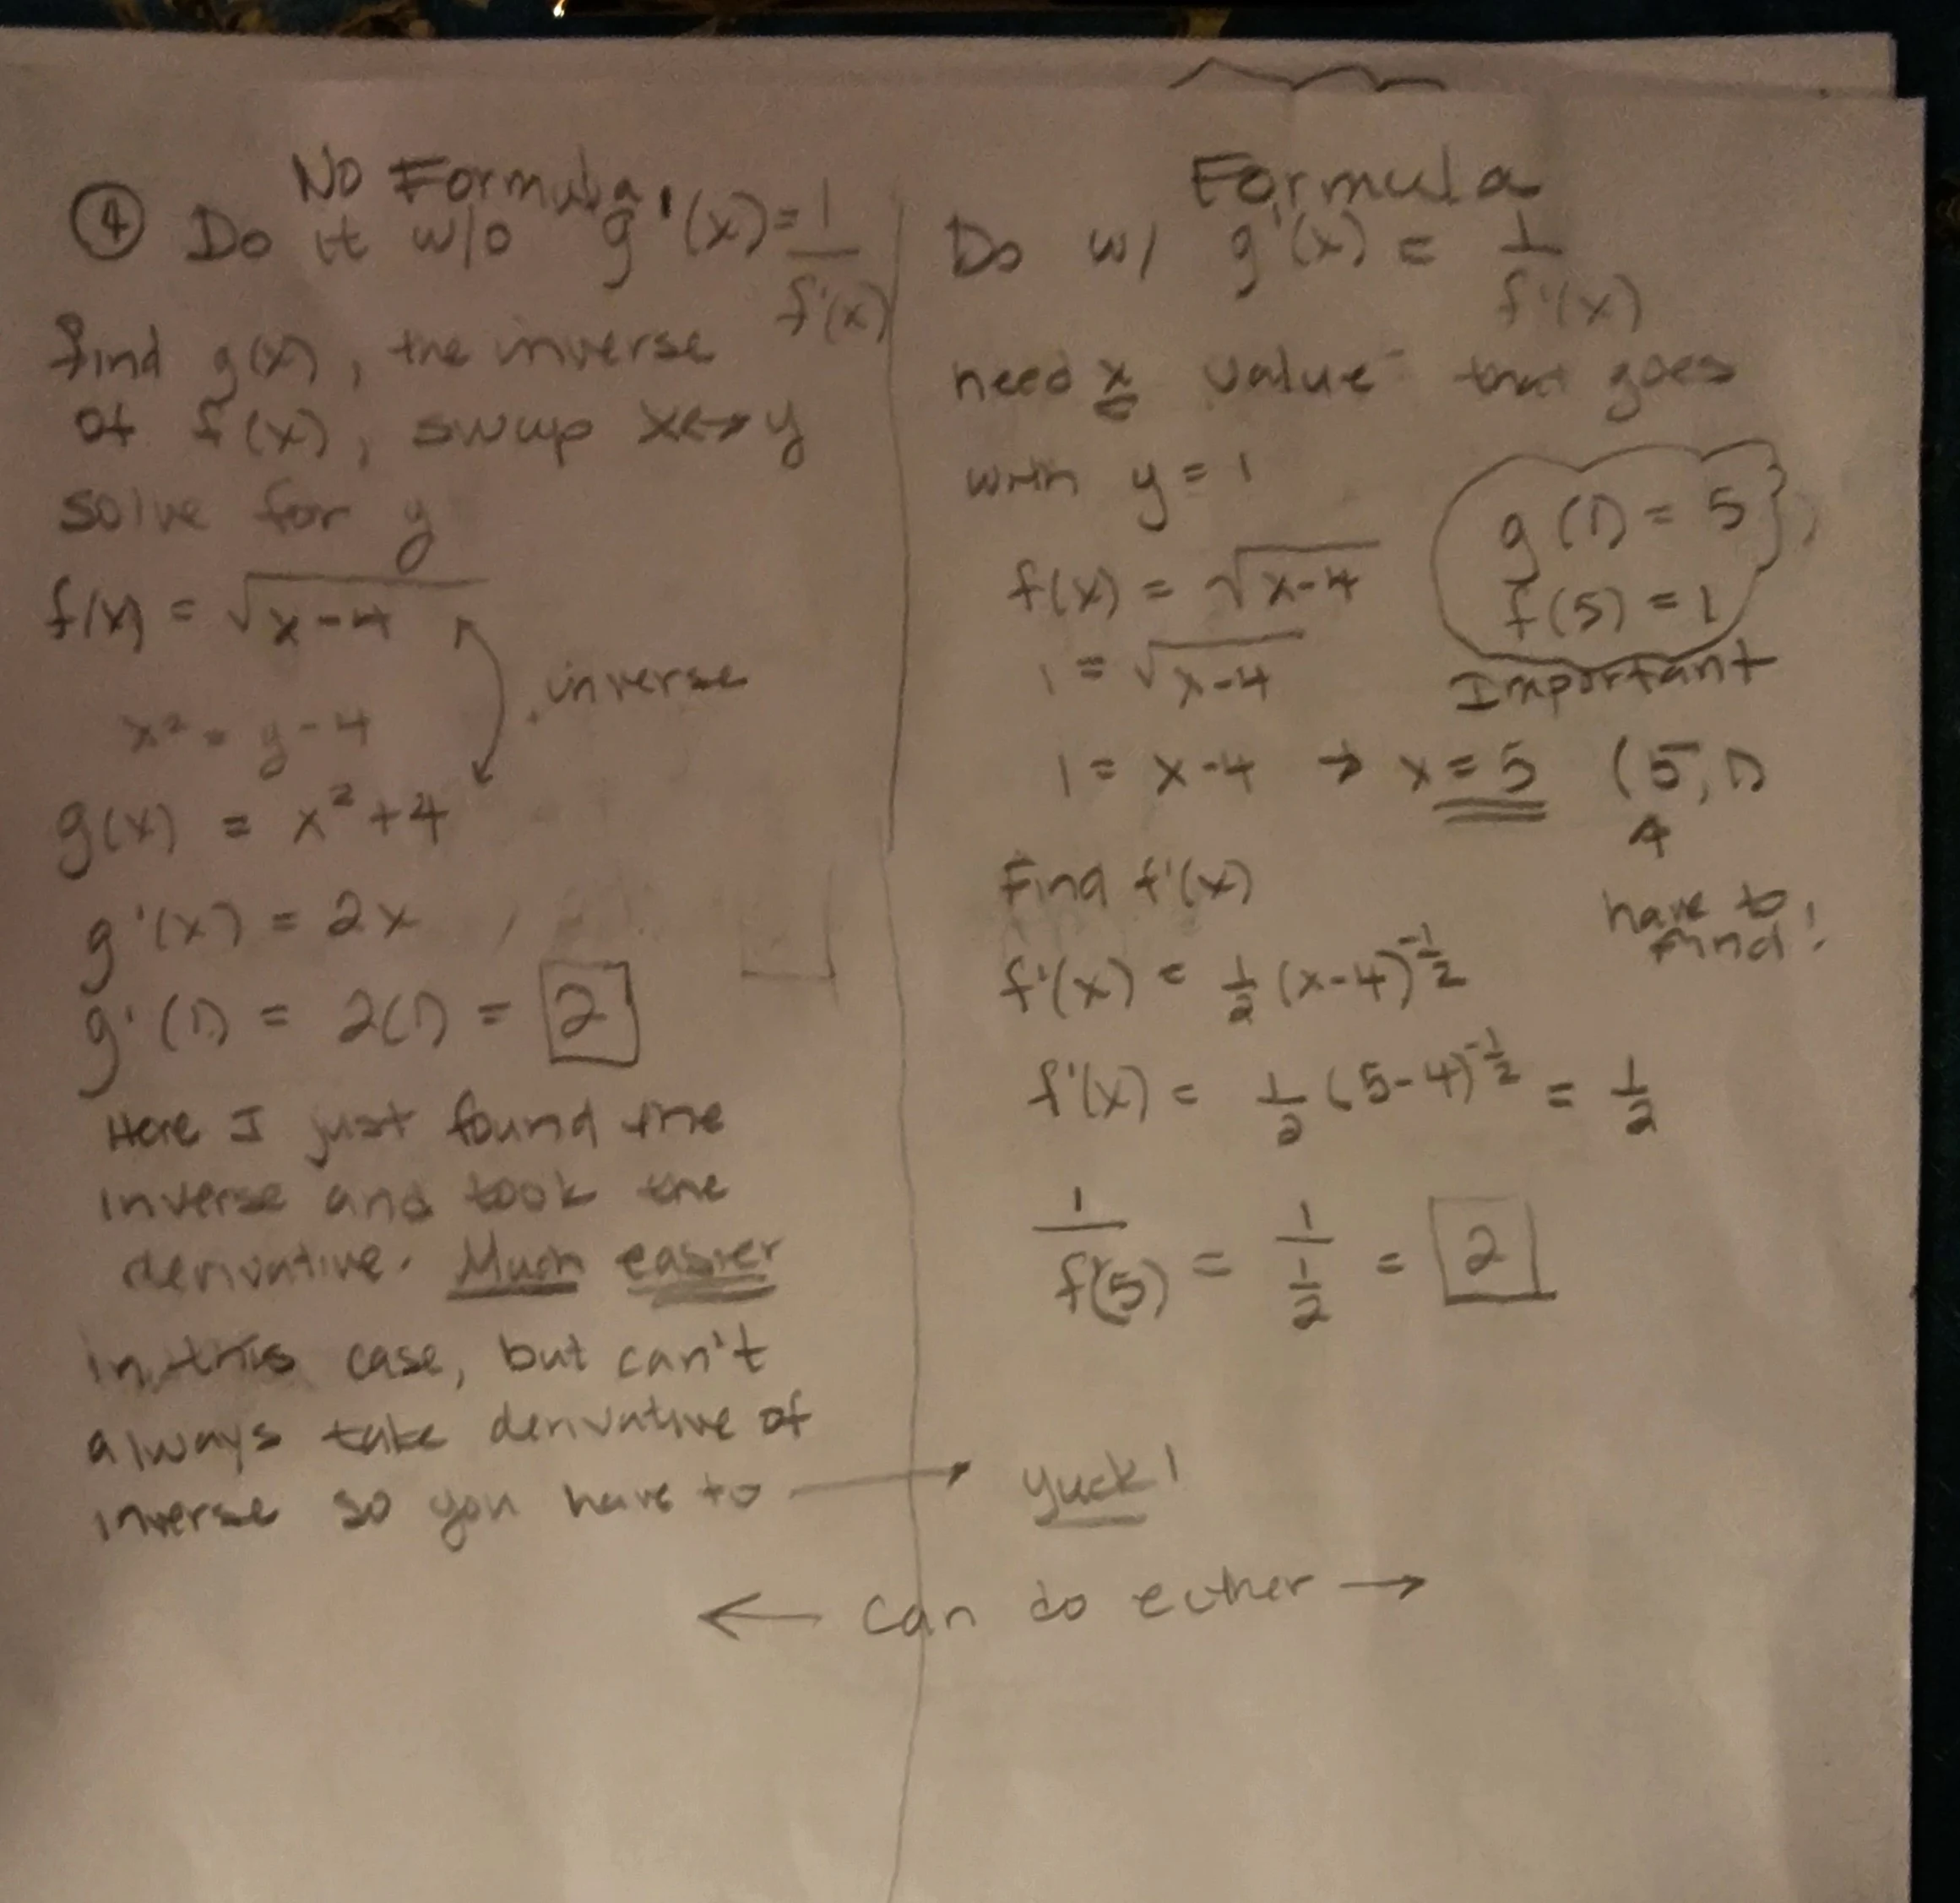 No Formula
④ Do it w/o g'(x) = 1/f'(x)
find g(x), the inverse
of f(x), swap x↔y
solve for y
f(x) = √(x-4)
inverse
x² = y-4
g(x) = x²+4
g'(x) = 2x
g'(1) = 2(1) = 2
Here I just found the
inverse and took the
derivative. Much easier
in this case, but can't
always take derivative of
inverse so you have to →
Formula
Do w/ g'(x) = 1/f'(x)
need x value that goes
with y = 1
g(1) = 5
f(5) = 1
Important
f(x) = √(x-4)
1 = √(x-4)
1 = x-4 → x = 5 (5,1)
have to
find!
Find f'(x)
f'(x) = 1/2 (x-4)^(-1/2)
f'(x) = 1/2 (5-4)^(-1/2) = 1/2
1/f'(5) = 1/(1/2) = 2
yuck!
← can do either →